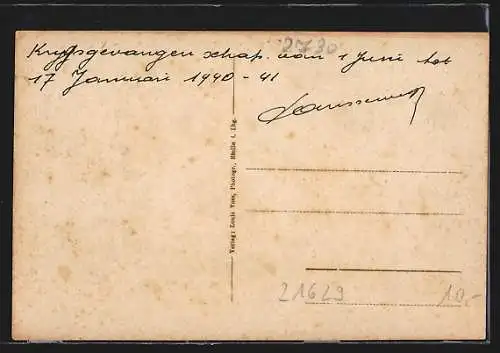 2730
Krijgsgevangenschap. van 1 Juni tot
17 Januari 1940-41
Verlag: Louis Voss, Photogr., Stolle i. Lbg.
21629
10,-